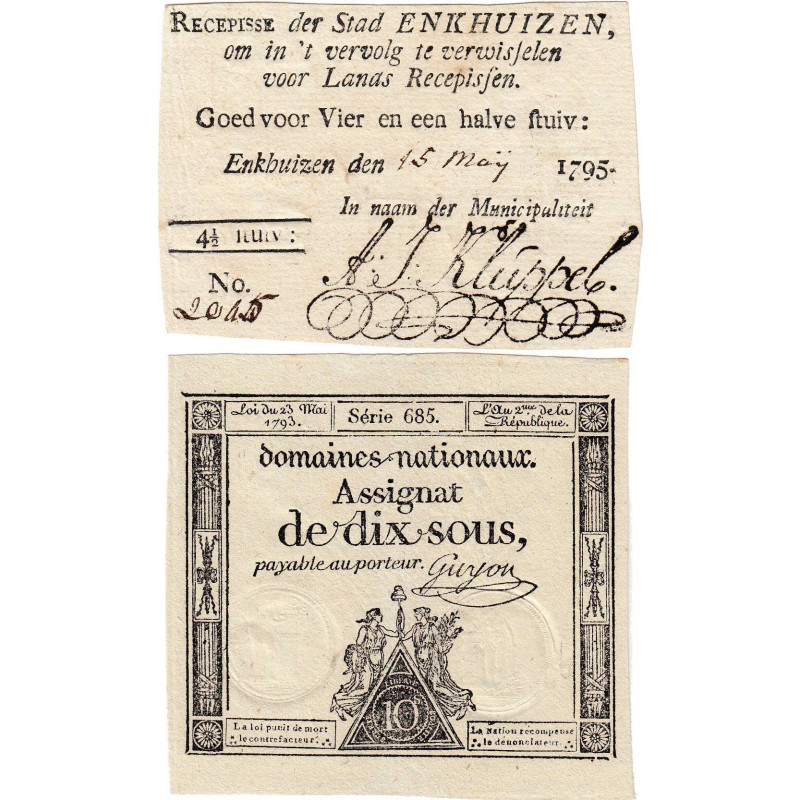 RECEPISSE der Stad ENKHUIZEN,
om in 't vervolg te verwisselen
voor Lands Recepissen.
Goed voor Vier en een halve stuiv:
Enkhuizen den 15 Maÿ 1795.
In naam der Municipaliteit
4½ stuiv:
A: J: Kluppel.
No.
Loi du 23 Mai
1793.
Série 685.
L'An 2me. de la
République.
domaines nationaux.
Assignat
de dix sous,
payable au porteur.
Guyon
LIBERTÉ
10
La loi punit de mort
le contrefacteur.
La Nation récompense
le dénonciateur.